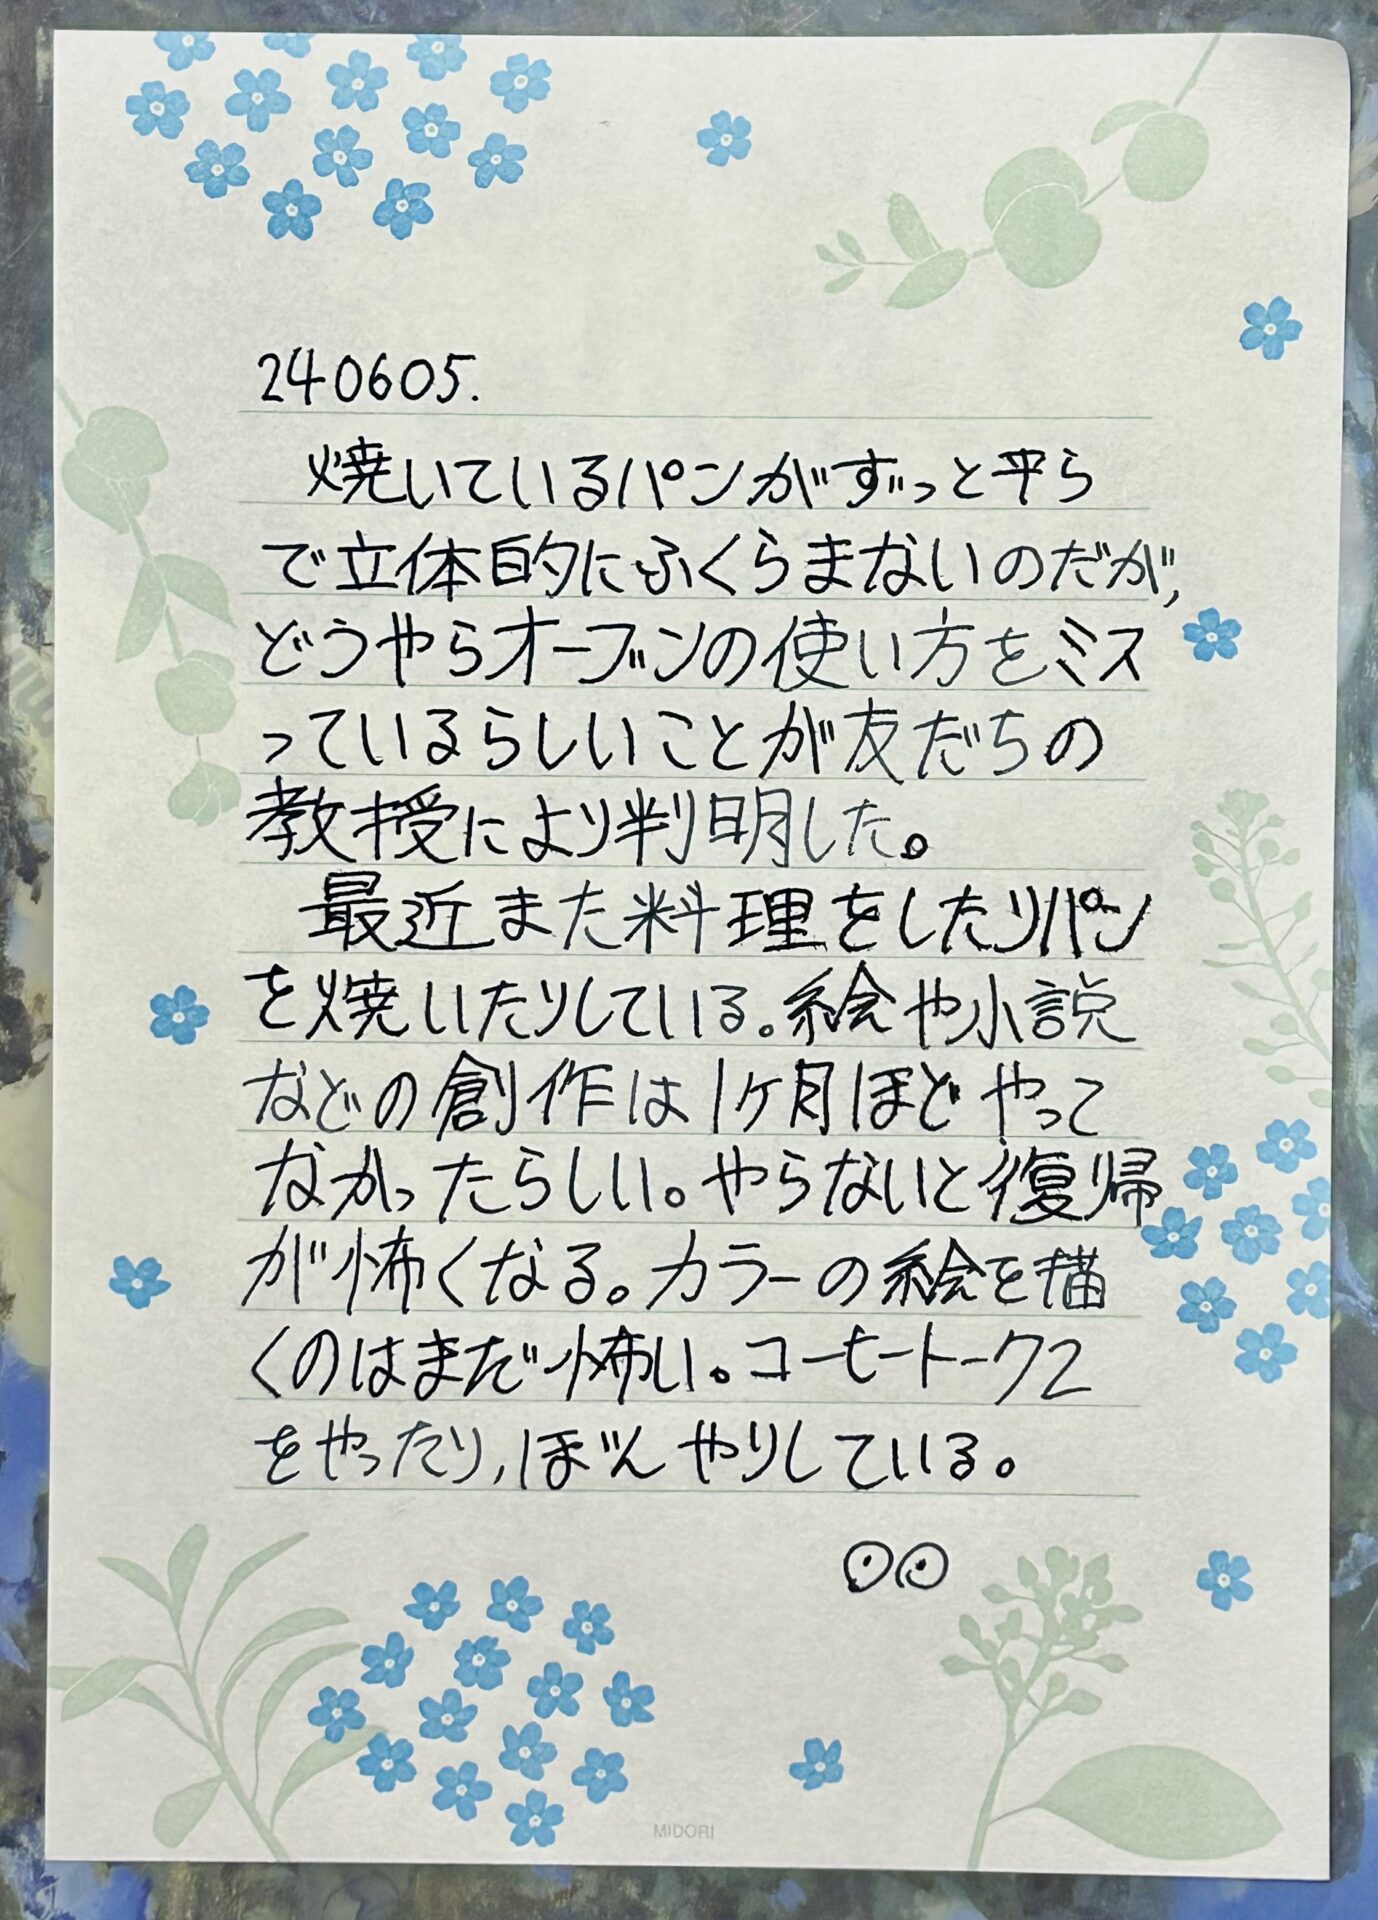 240605.
焼いているパンがずっと平ら
で立体的にふくらまないのだが,
どうやらオーブンの使い方をミス
っているらしいことが友だちの
教授により判明した。
最近また料理をしたりパン
を焼いたりしている。絵や小説
などの創作は1ヶ月ほどやって
なかったらしい。やらないと復帰
が怖くなる。カラーの絵を描
くのはまだ怖い。コーヒートーク2
をやったり,ぼんやりしている。
MIDORI